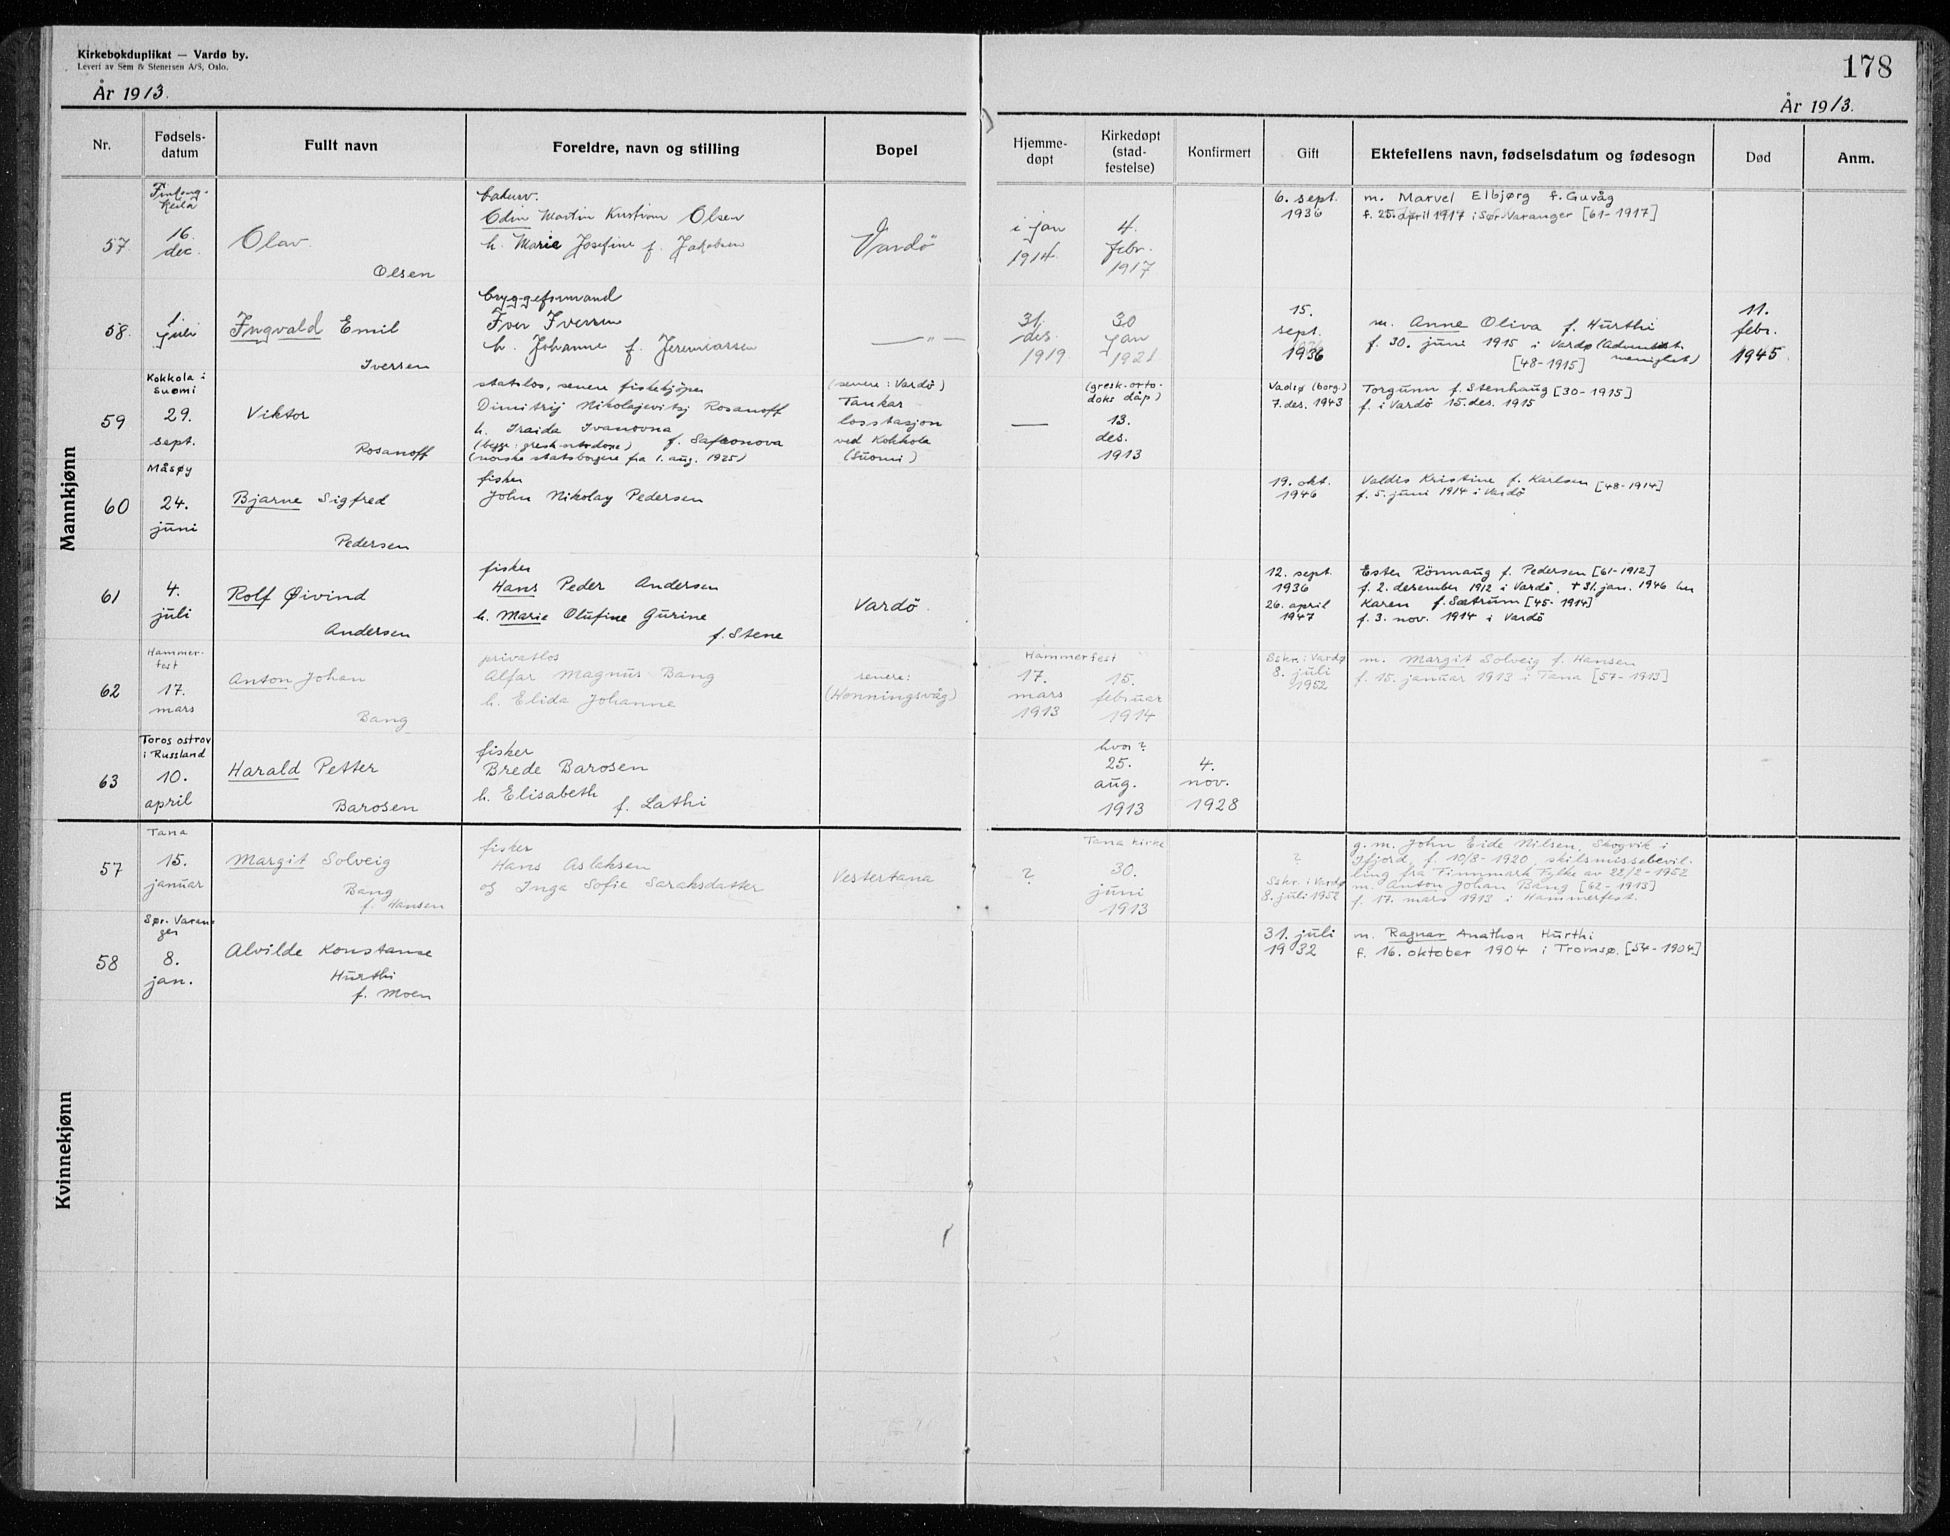 Kirkebokduplikat — Vardø by.
Levert av Sem & Stenersen A/S, Oslo.
178
År 1913.
År 1913.
Nr.
Fødsels-
datum
Fullt navn
Foreldre, navn og stilling
Bopel
Hjemme-
døpt
Kirkedøpt
(stad-
festelse)
Konfirmert
Gift
Ektefellens navn, fødselsdatum og fødesogn
Død
Anm.
Mannkjønn
57
16.
dec.
Olav
Olsen
Odin Martin Kristian Olsen
h. Marie Josefine f. Jakobsen
Vardö
i jan
1914
4.
febr.
1917
6. sept.
1936
m. Marvel Elbjørg f. Guvåg
f. 25. april 1917 i Sør-Varanger [61-1917]
58.
1.
juli
Ingvald Emil
Iversen
bryggeformand
Iver Iversen
h. Johanne f. Jeremiassen
— " —
31.
des.
1919
30
jan
1921
15.
sept.
1936
m. Anne Oliva f. Hurthi
f. 30. juni 1915 i Vardø (Adventist-
menighet)
[48-1915]
11.
febr.
1945.
Kokkola i
Suomi
59
29.
sept.
Viktor
Rosanoff
statslos, senere fiskekjöper
Dimitrij Nikolajevitsj Rosanoff
h. Iraida Ivanovna
f. Safronova
(begge: gresk ortodoxe)
(norske statsborgere fra 1. aug. 1925)
(senere: Vardö)
Tankar
losstasjon
ved Kokkola
(Suomi)
—
(gresk-orto-
doks dåp)
13.
des.
1913
Vadsø (borg.)
7. des. 1943
Torgunn f. Stenhaug [30-1915]
f. i Vardö 15. des. 1915
Måsøy
60
24.
juni
Bjarne Sigfred
Pedersen
fisker
John Nikolay Pedersen
19. okt.
1946
Valdis Kristine f. Karlsen [48-1914]
f. 5. juni 1914 i Vardö
61
4.
juli
Rolf Øivind
Andersen
fisker
Hans Peder Andersen
h. Marie Olufine Gurine
f. Stene
Vardö.
12. sept.
1936
26. april
1947
Ester Rönnaug f. Pedersen [61-1912]
f. 2. desember 1912 i Vardö. + 31. jan. 1946 her
Karen f. Sætrum [45-1914]
f. 3. nov. 1914 i Vardö
Hammer-
fest
62
17.
mars
Anton Johan
Bang
privatlos
Alfar Magnus Bang
h. Elida Johanne
senere:
(Honningsvåg)
Hammerfest
17.
mars
1913
15.
februar
1914
Sskr. i Vardø
8. juli
1952
m. Margit Solveig f. Hansen
f. 15. januar 1913 i Tana [57-1913]
Toros ostrov
i Russland
63
10.
april
Harald Petter
Barosen
fisker
Brede Barosen
h. Elisabeth
f. Lathi
hvor?
25.
aug.
1913
4.
nov.
1928
Kvinnekjønn
Tana
57
15.
januar
Margit Solveig
Bang
f. Hansen
fisker
Hans Aslaksen
og Inga Sofie Saraksdatter
Vestertana
?
Tana kirke
30.
juni
1913
?
Sskr. i Vardø
8. juli 1952
g. m. John Eide Nilsen, Skogvik i
Ifjord, f. 10/8-1920, skilsmissebevil-
ling fra Finnmark Fylke av 22/2-1952
m. Anton Johan Bang [62-1913]
f. 17. mars 1913 i Hammerfest.
Sør-Varan-
ger
58
8.
jan.
Alvilde Konstanse
Hurthi
f. Moen
31. juli
1932
m. Ragnar Anathon Hurthi
f. 16. oktober 1904 i Tromsø. [54-1904]